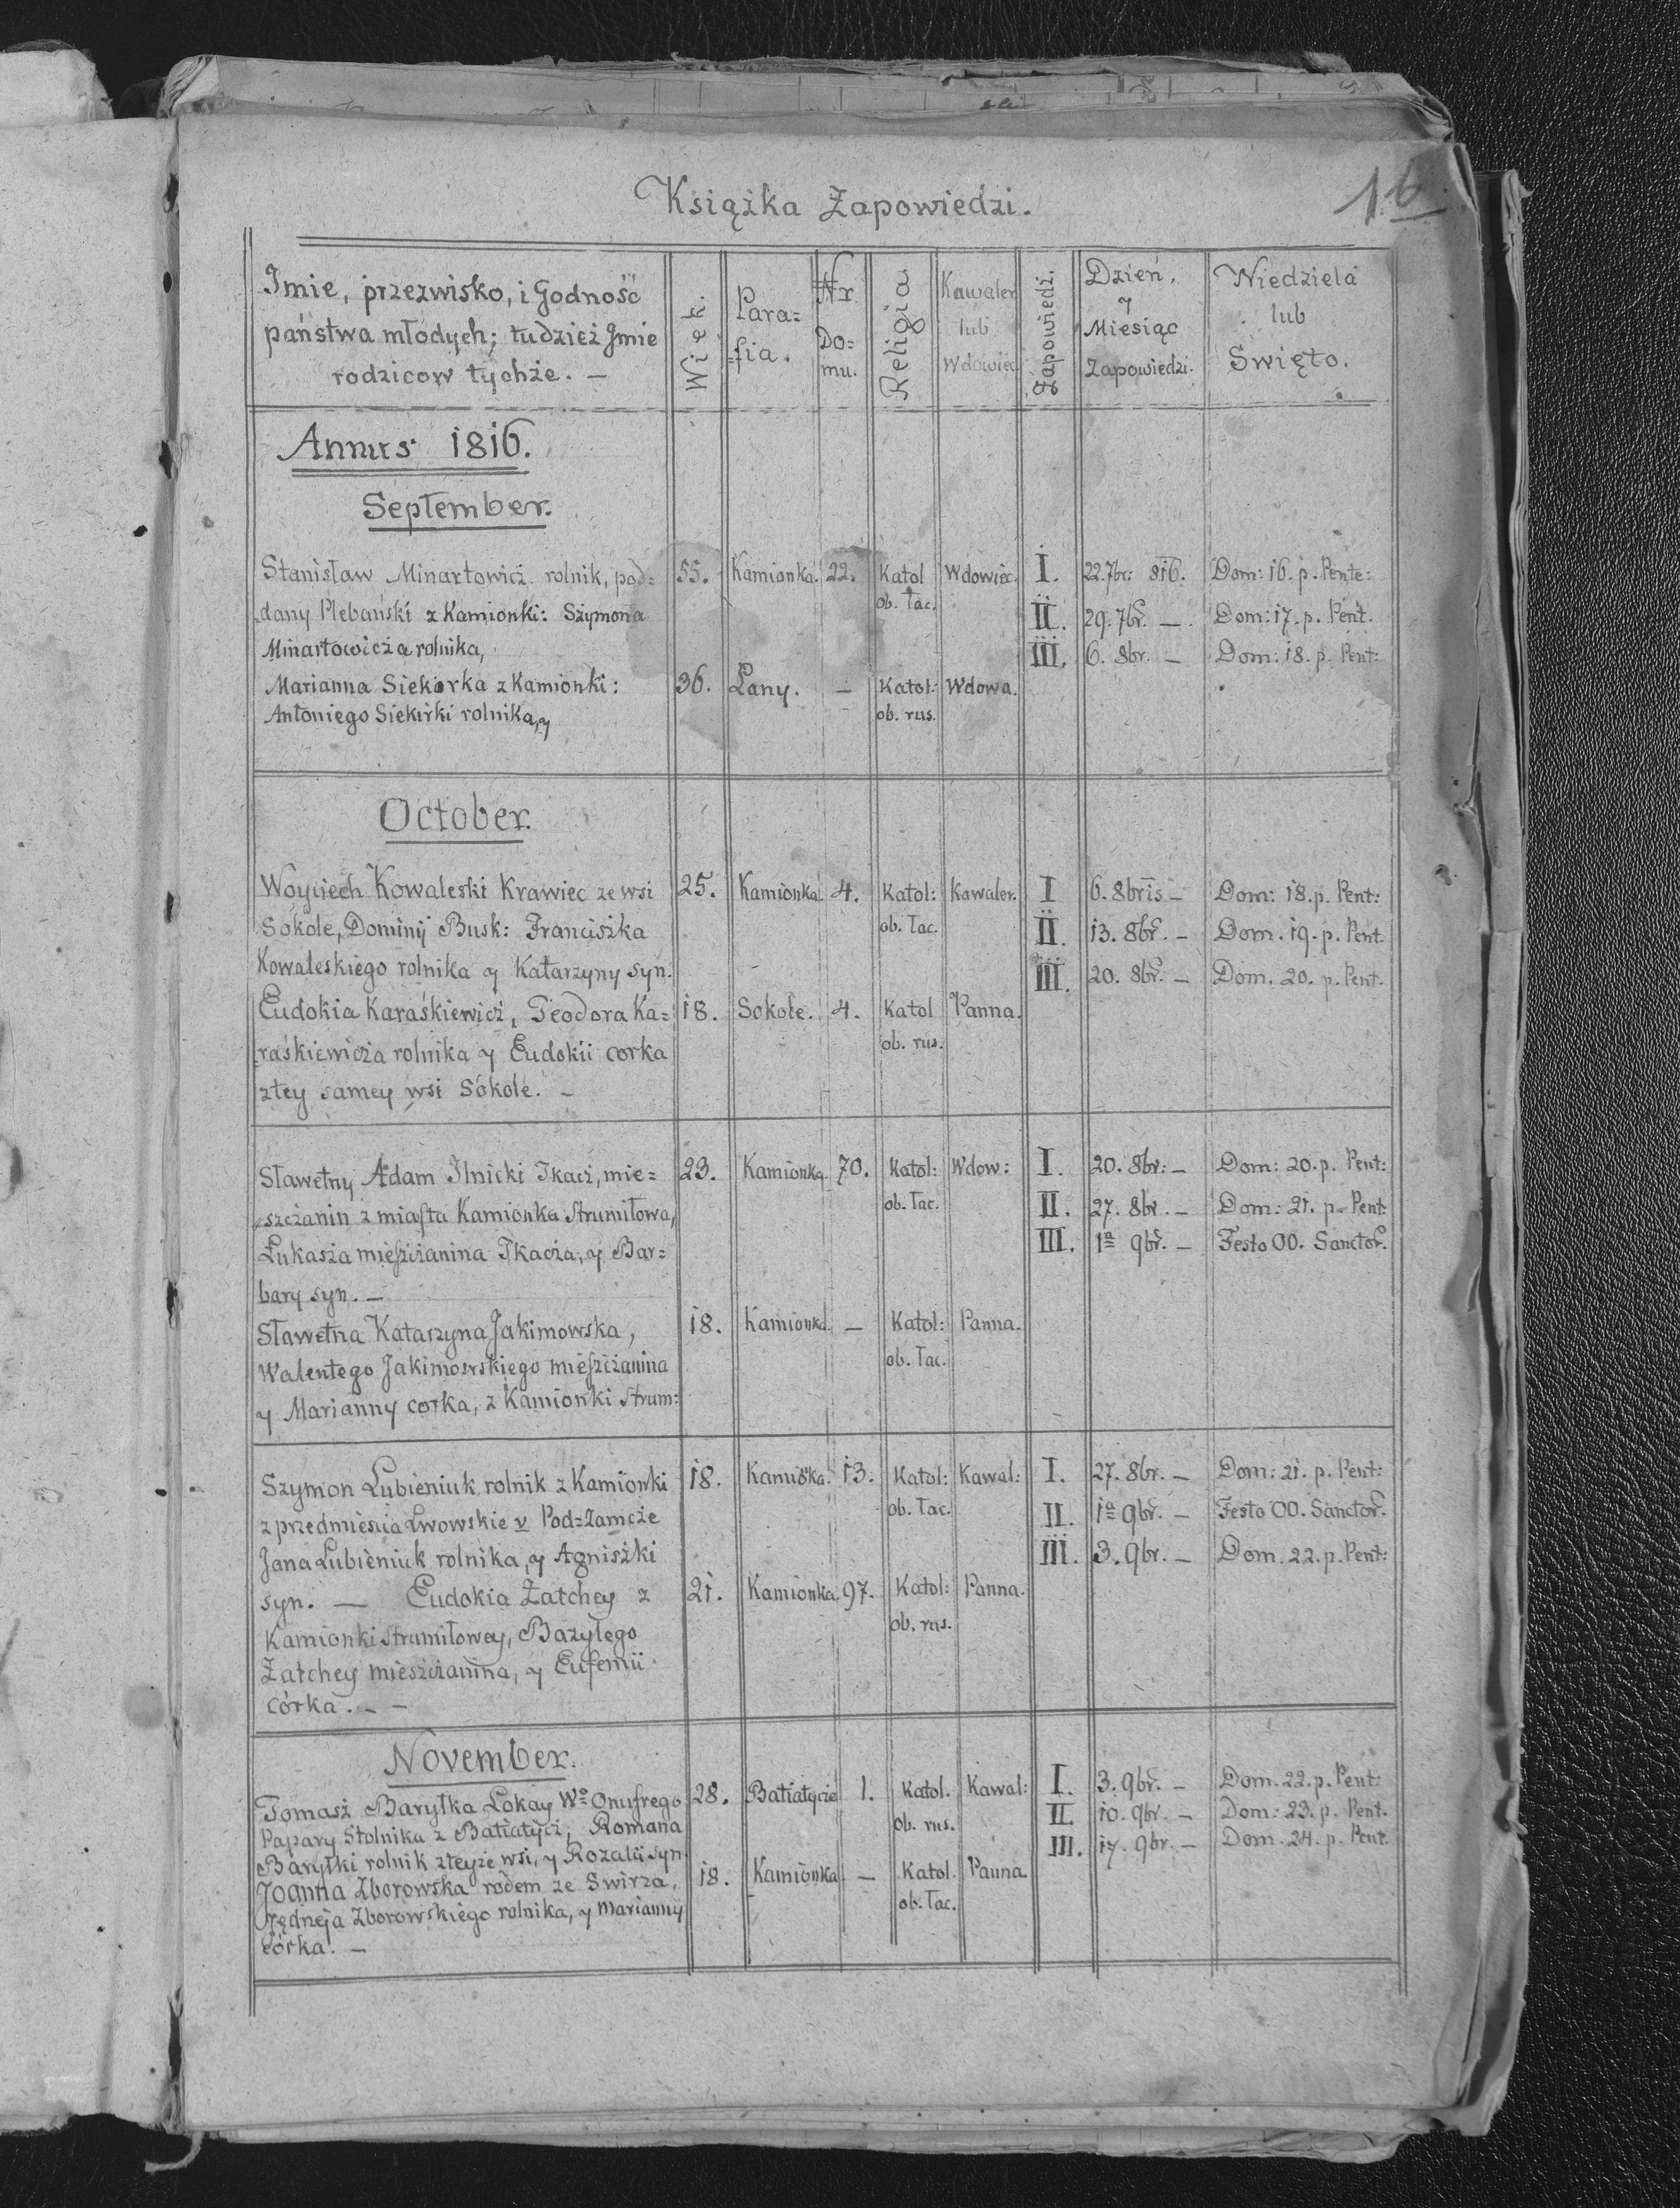 16.
Książka Zapowiedzi.
Imie, przezwisko, i Godność
państwa młodych; tudzież Imie
rodzicow tychże. —
Wiek.
Para=
=fia.
Nr
Do=
mu.
Religia
Kawaler
lub
Wdowiec
Zapowiedzi.
Dzień,
y
Miesiąc
Zapowiedzi.
Niedziela
lub
Swięto.
Annus 1816.
September.
Stanisław Minartowicz. rolnik, pod= 55. Kamionka. 22. Katol Wdowiec. I. 22. 7br: 816. Dom: 16. p. Pente:
ob. łac.
dany Plebański z Kamionki: Szymona II. 29. 7br. — Dom: 17. p. Pent.
Minartowicza rolnika, III. 6. 8br. — Dom: 18. p. Pent:
Marianna Siekerka z Kamionki: 36. Łany. — Katol: Wdowa.
Antoniego Siekirki rolnika, y ob. rus.
October.
Woyciech Kowaleski Krawiec ze wsi 25. Kamionka. 4. Katol: Kawaler. I 6. 8bris — Dom: 18. p. Pent:
Sokole, Dominij Busk: Franciszka ob. łac. II. 13. 8br. — Dom. 19. p. Pent.
Kowaleskiego rolnika y Katarzyny syn. III. 20. 8br. — Dom. 20. p. Pent.
Eudokia Karaśkiewicz, Teodora Ka= 18. Sokole. 4. Katol Panna.
raśkiewicza rolnika y Eudokii corka ob. rus.
ztey samey wsi Sokole. —
Sławetny Adam Ilnicki Tkacz, mie= 23. Kamionka. 70. Katol: Wdow: I. 20. 8br: — Dom: 20. p. Pent:
szczanin z miasta Kamionka Strumiłowa, ob. łac. II. 27. 8br. — Dom: 21. p. Pent
Łukasza mieszczanina Tkacza, y Bar= III. 1a 9br. — Festo OO. Sanctor.
bary syn. —
Sławetna Katarzyna Jakimowska, 18. Kamionka. — Katol: Panna.
Walentego Jakimowskiego mieszczanina ob. łac.
y Marianny corka, z Kamionki Strum:
Szymon Lubieniuk rolnik z Kamionki 18. Kamiōka. 13. Katol: Kawal: I. 27. 8br. — Dom: 21. p. Pent:
z przedmiescia Lwowskie v Pod=Zamcze ob. łac. II. 1a 9br. — Festo OO. Sanctor.
Jana Lubieniuk rolnika, y Agniszki III. 3. 9br. — Dom. 22. p. Pent:
syn. — Eudokia Zatchey z 21. Kamionka. 97. Katol: Panna.
Kamionki Strumiłowey, Bazylego ob. rus.
Zatchey mieszczanina, y Eufemii
córka. — —
November.
Tomasz Baryłka Lokay Wo Onufrego 28. Batiatycze 1. Katol. Kawal: I. 3. 9br. — Dom. 22. p. Pent:
Papary Stolnika z Batiatycz, Romana ob. rus. II. 10. 9br. — Dom: 23. p. Pent.
Baryłki rolnik zteyze wsi, y Rozalii syn. III. 17. 9br. — Dom. 24. p. Pent
Joanna Zborowska rodem ze Swirza, 18. Kamionka. — Katol. Panna.
Zborowskiego rolnika, y Marianny ob. łac.
córka. —